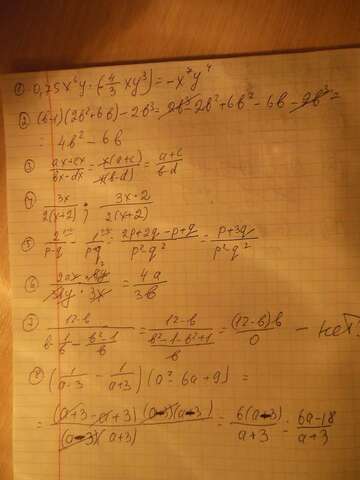 ① 0,75x⁶y · (-4/3 xy³) = -x⁷y⁴
② (b-1)(2b²+6b) - 2b³ = 2b³ - 2b² + 6b² - 6b - 2b³ =
= 4b² - 6b
③ (ax+cx)/(bx-dx) = x(a+c)/x(b-d) = (a+c)/(b-d)
④ 3x/2(x+2) ; 3x·2/2(x+2)
⑤ 2/(p-q) - 1/(p+q) = (2p+2q-p+q)/(p²-q²) = (p+3q)/(p²-q²)
⑥ = 4a/3b
⑦ = (12-b)/((b²-1-b²+1)/b) = (12-b)·b/0 - нет.
⑧ (1/(a-3) - 1/(a+3)) (a²-6a+9) =
= (a+3-a+3)(a-3)(a-3)/(a-3)(a+3) = 6(a-3)/(a+3) = (6a-18)/(a+3)